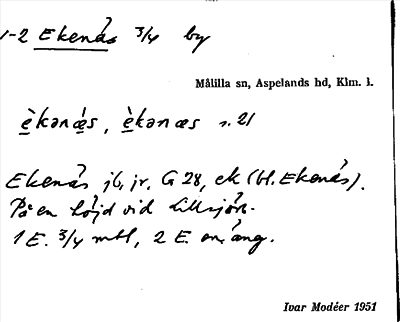 1-2 Ekenäs 3/4 by
Målilla sn, Aspelands hd, Klm. l.
èkənǽs, èkənæs s. 21
Ekenäs jb, jr, G 28, ek (bl. Ekenäs).
På en höjd vid Lillsjön.
1 E. 3/4 mtl, 2 E. äng.
Ivar Modéer 1951